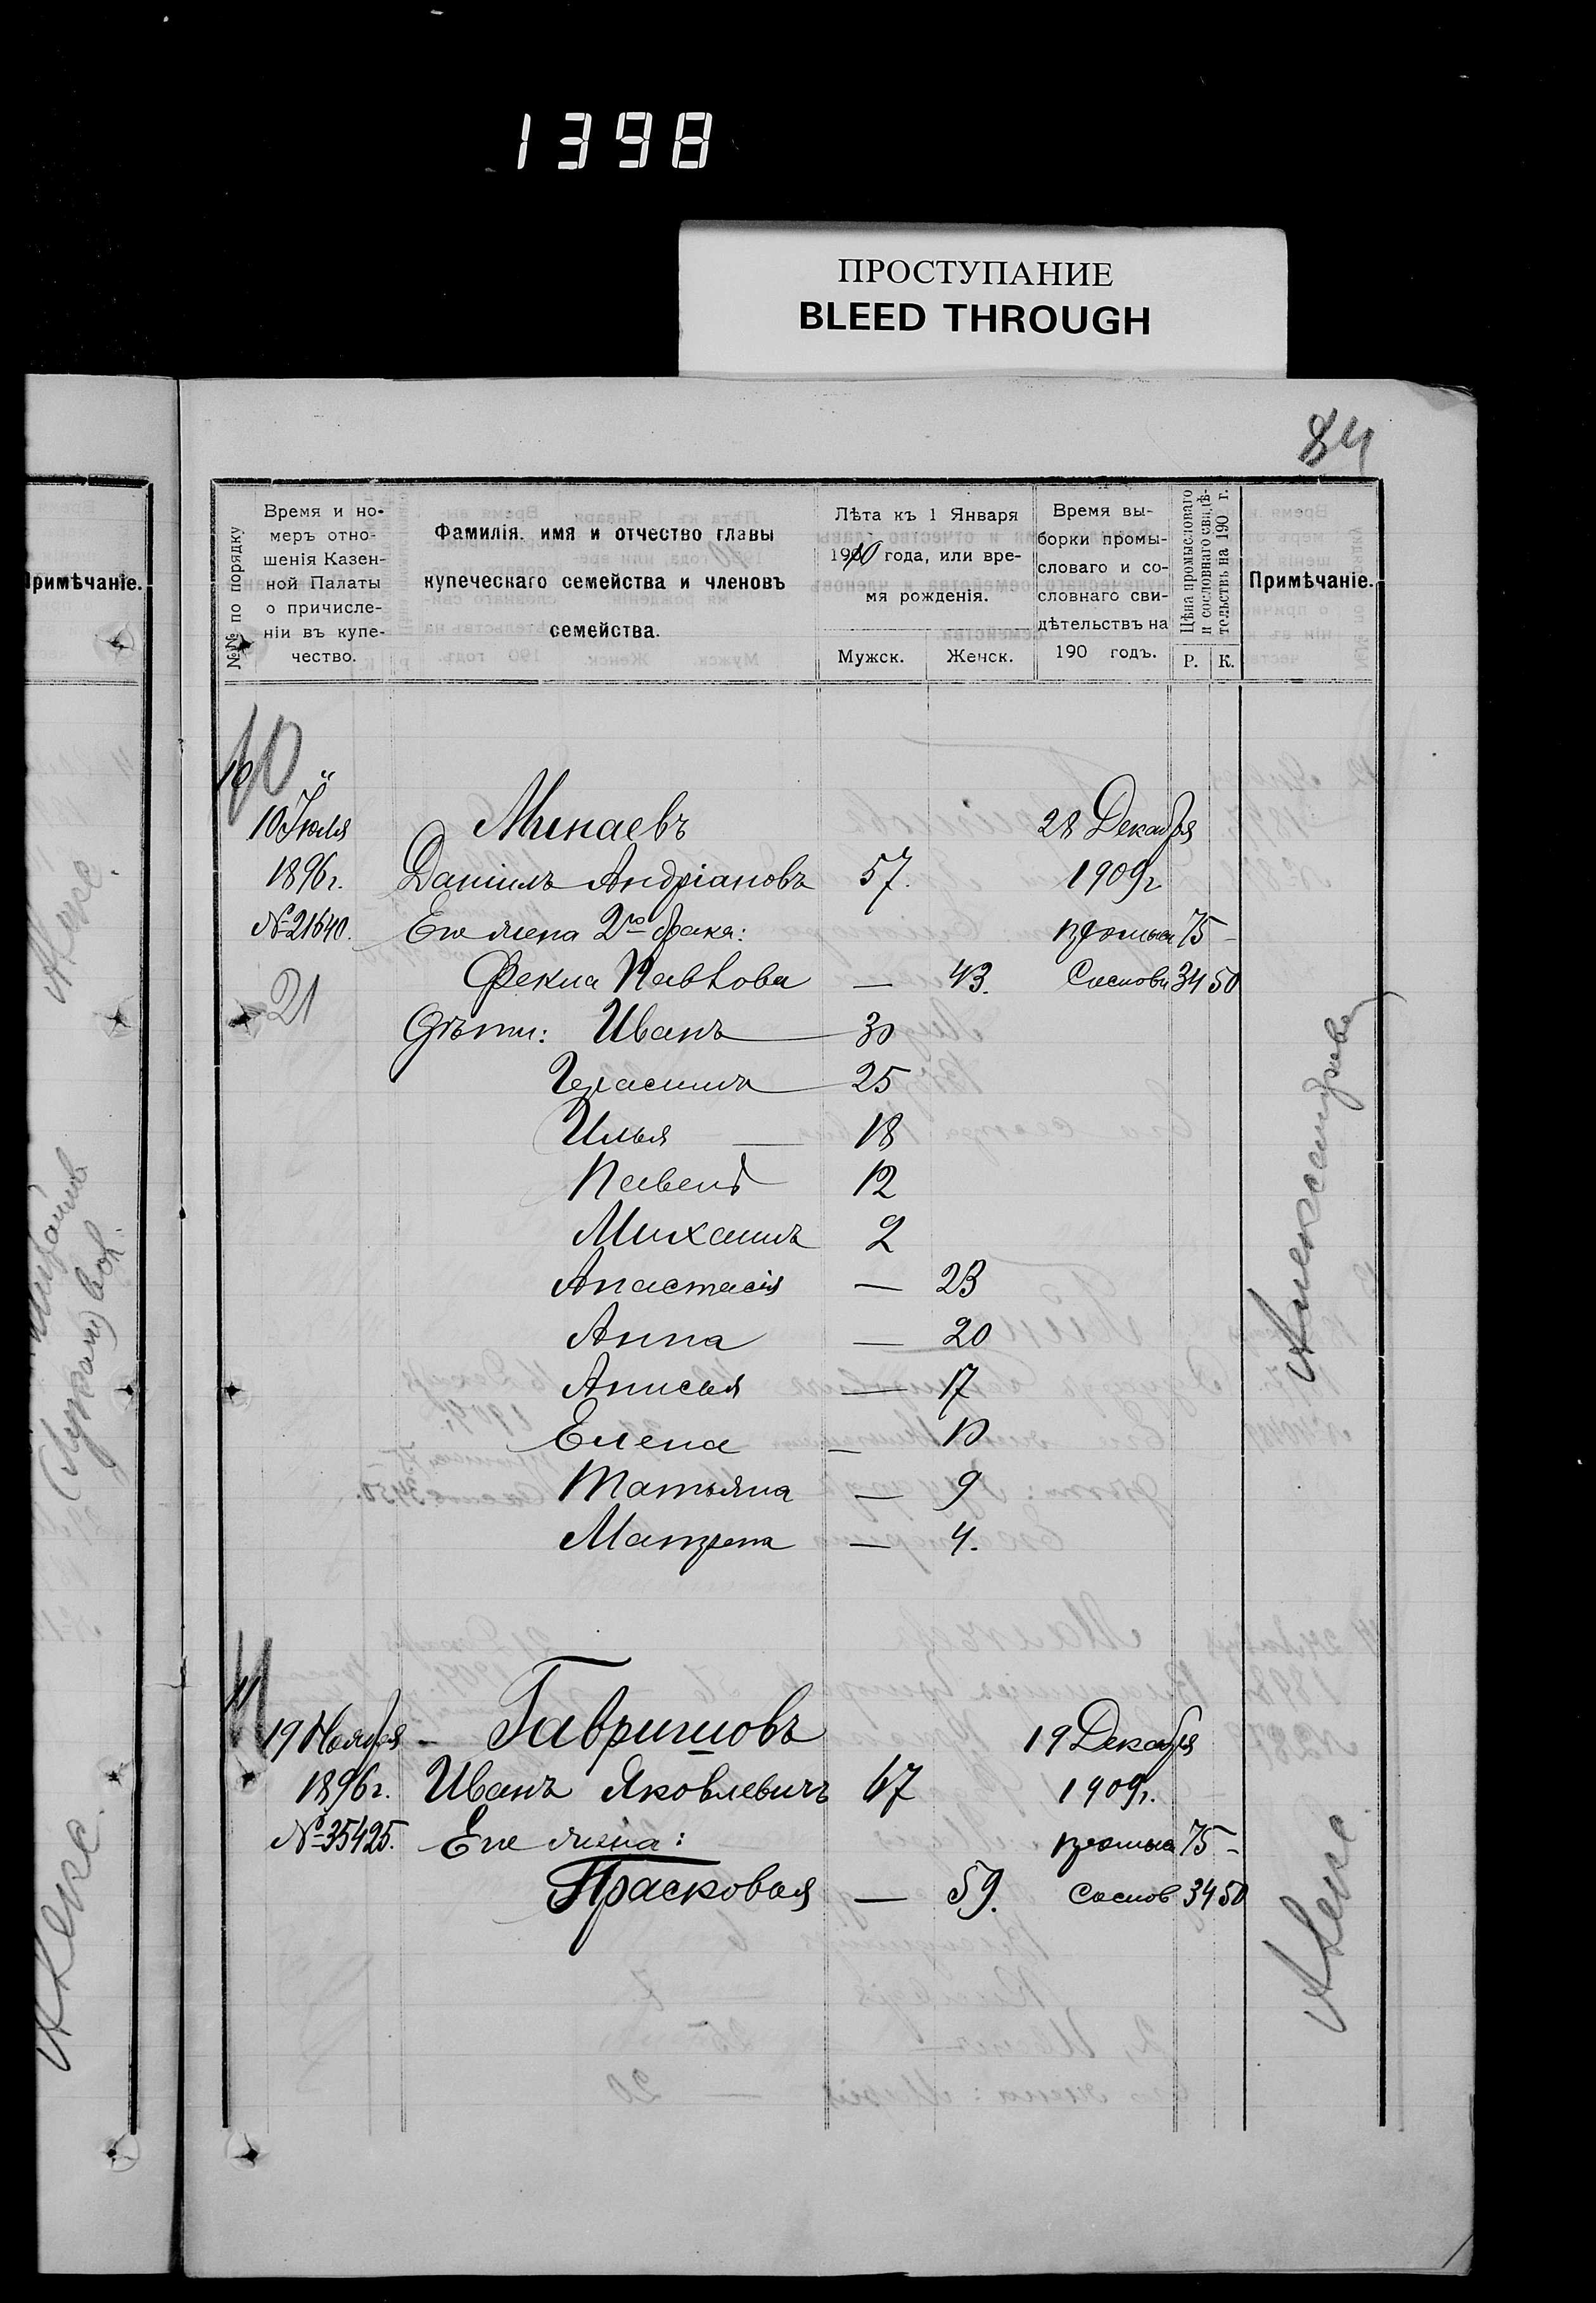 1398
ПРОСТУПАНИЕ
BLEED THROUGH
84
Примѣчаніе.
№№ по порядку
Время и но-
меръ отно-
шенія Казен-
ной Палаты
о причисле-
ніи въ купе-
чество.
Фамилія, имя и отчество главы
купеческаго семейства и членовъ
семейства.
Лѣта къ 1 Января
1910 года, или вре-
мя рожденія.
Мужск. Женск.
Время вы-
борки промы-
словаго и со-
словнаго сви-
дѣтельствъ на
190 годъ.
Цѣна промысловаго
и сословнаго свидѣ-
тельствъ на 190 г.
Р. К.
Примѣчаніе.
10
10 Іюля Минаевъ 28 Декабря
1896 г. Даніилъ Андріановъ 57. 1909 г
№ 21640. Его жена 2го брака: промысл 75 -
21 Фекла Павлова — 43. Сословн 34 50
Дѣти: Иванъ 30
Герасимъ 25
Илья — 18
Павелъ 12
Михаилъ 2
Анастасія — 23
Анна — 20
Анисья — 17
Елена —
Татьяна — 9
Матрена — 4.
Александров
11
19 Ноября - Гавриловъ 19 Декабря
1896 г. Иванъ Яковлевичъ 67 1909 г.
№ 35425. Его жена: промысл 75 -
Прасковья — 59. Сослов 34 50
Алекс